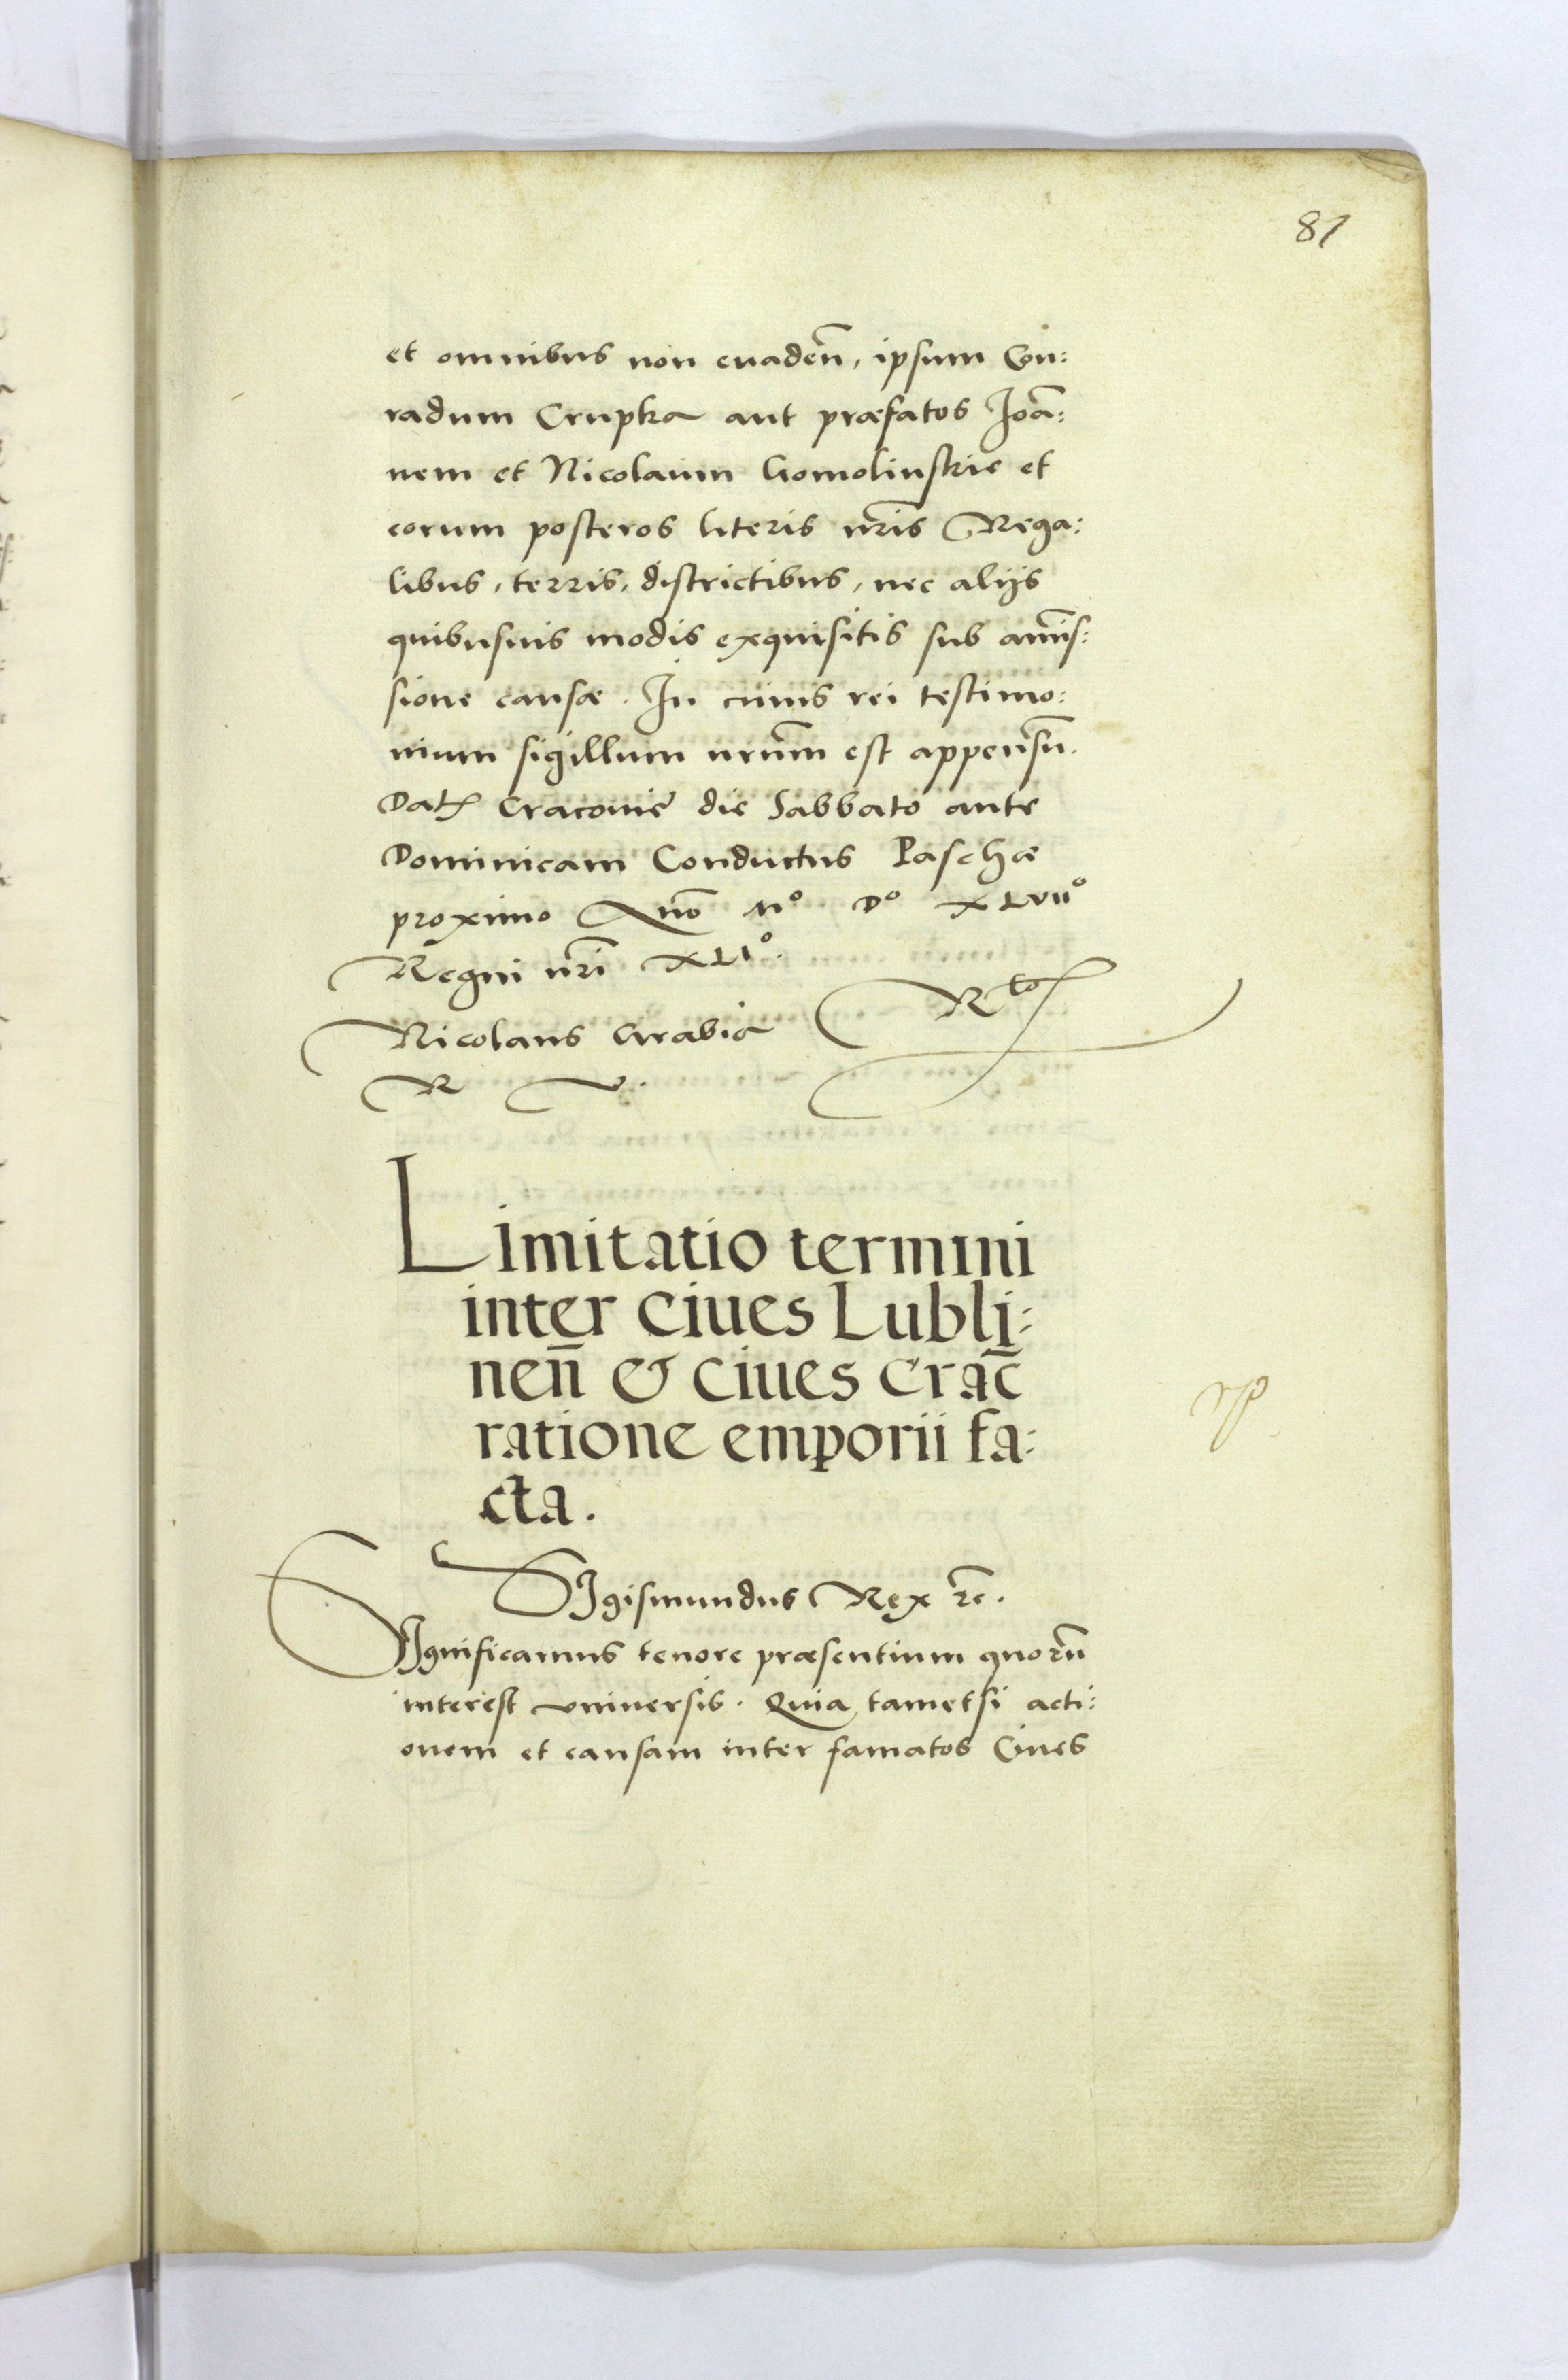 81
et omnibus non euadeñ, ipsum Con:
radum Crupka aut præfatos Joã:
nem et Nicolaum Gomolinskie et
eorum posteros literis nr̃is Rega:
libus, terris, districtibus, nec alijs
quibusuis modis exquisitis sub amĩs:
sione causæ. In cuius rei testimo:
nium sigillum nrũm est appensũ.
Dat Cracouie die Sabbato ante
Dominicam Conductus Paschæ
proximo Anõ Mº Dº XLVIIº
Regni nr̃i XLIº.
Nicolaus Grabia Rto
R V.
Limitatio termini
inter ciues Lubli:
neñ & ciues Crac̃
ratione emporii fa:
cta.
Sigismundus Rex rc̃.
Significamus tenore præsentium quorũ
interest vniuersis. Quia tametsi acti:
onem et causam inter famatos Ciues